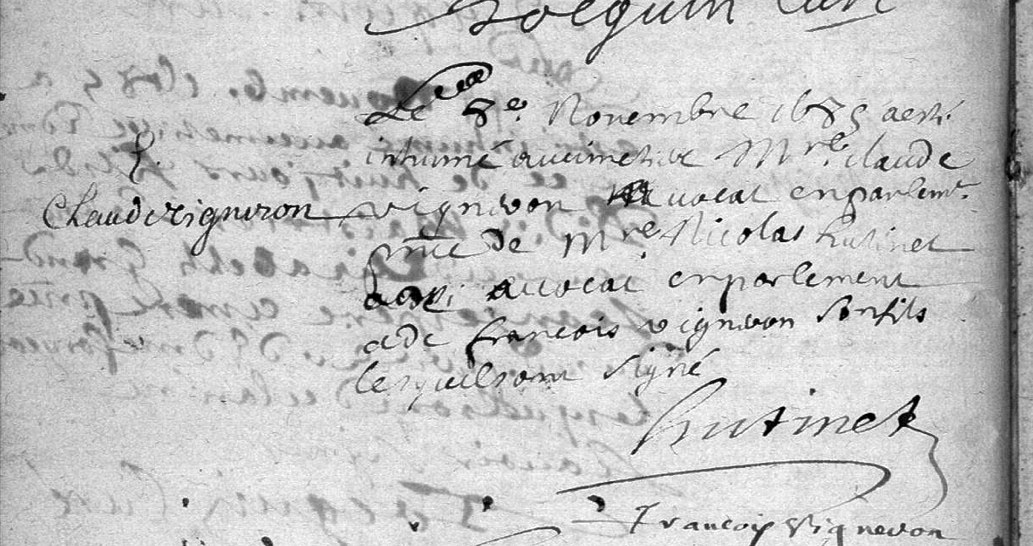 Jolequin Curé
Le 8e. Novembre 1685 a esté
inhumé au cimetire Mre. Claude
vigneron avocat en parlemt.
pnce de Mre Nicolas hutinet
aussi avocat en parlement
et de francois vigneron son fils
lesquels ont signé
Claude vigneron
hutinet
Francois Vigneron